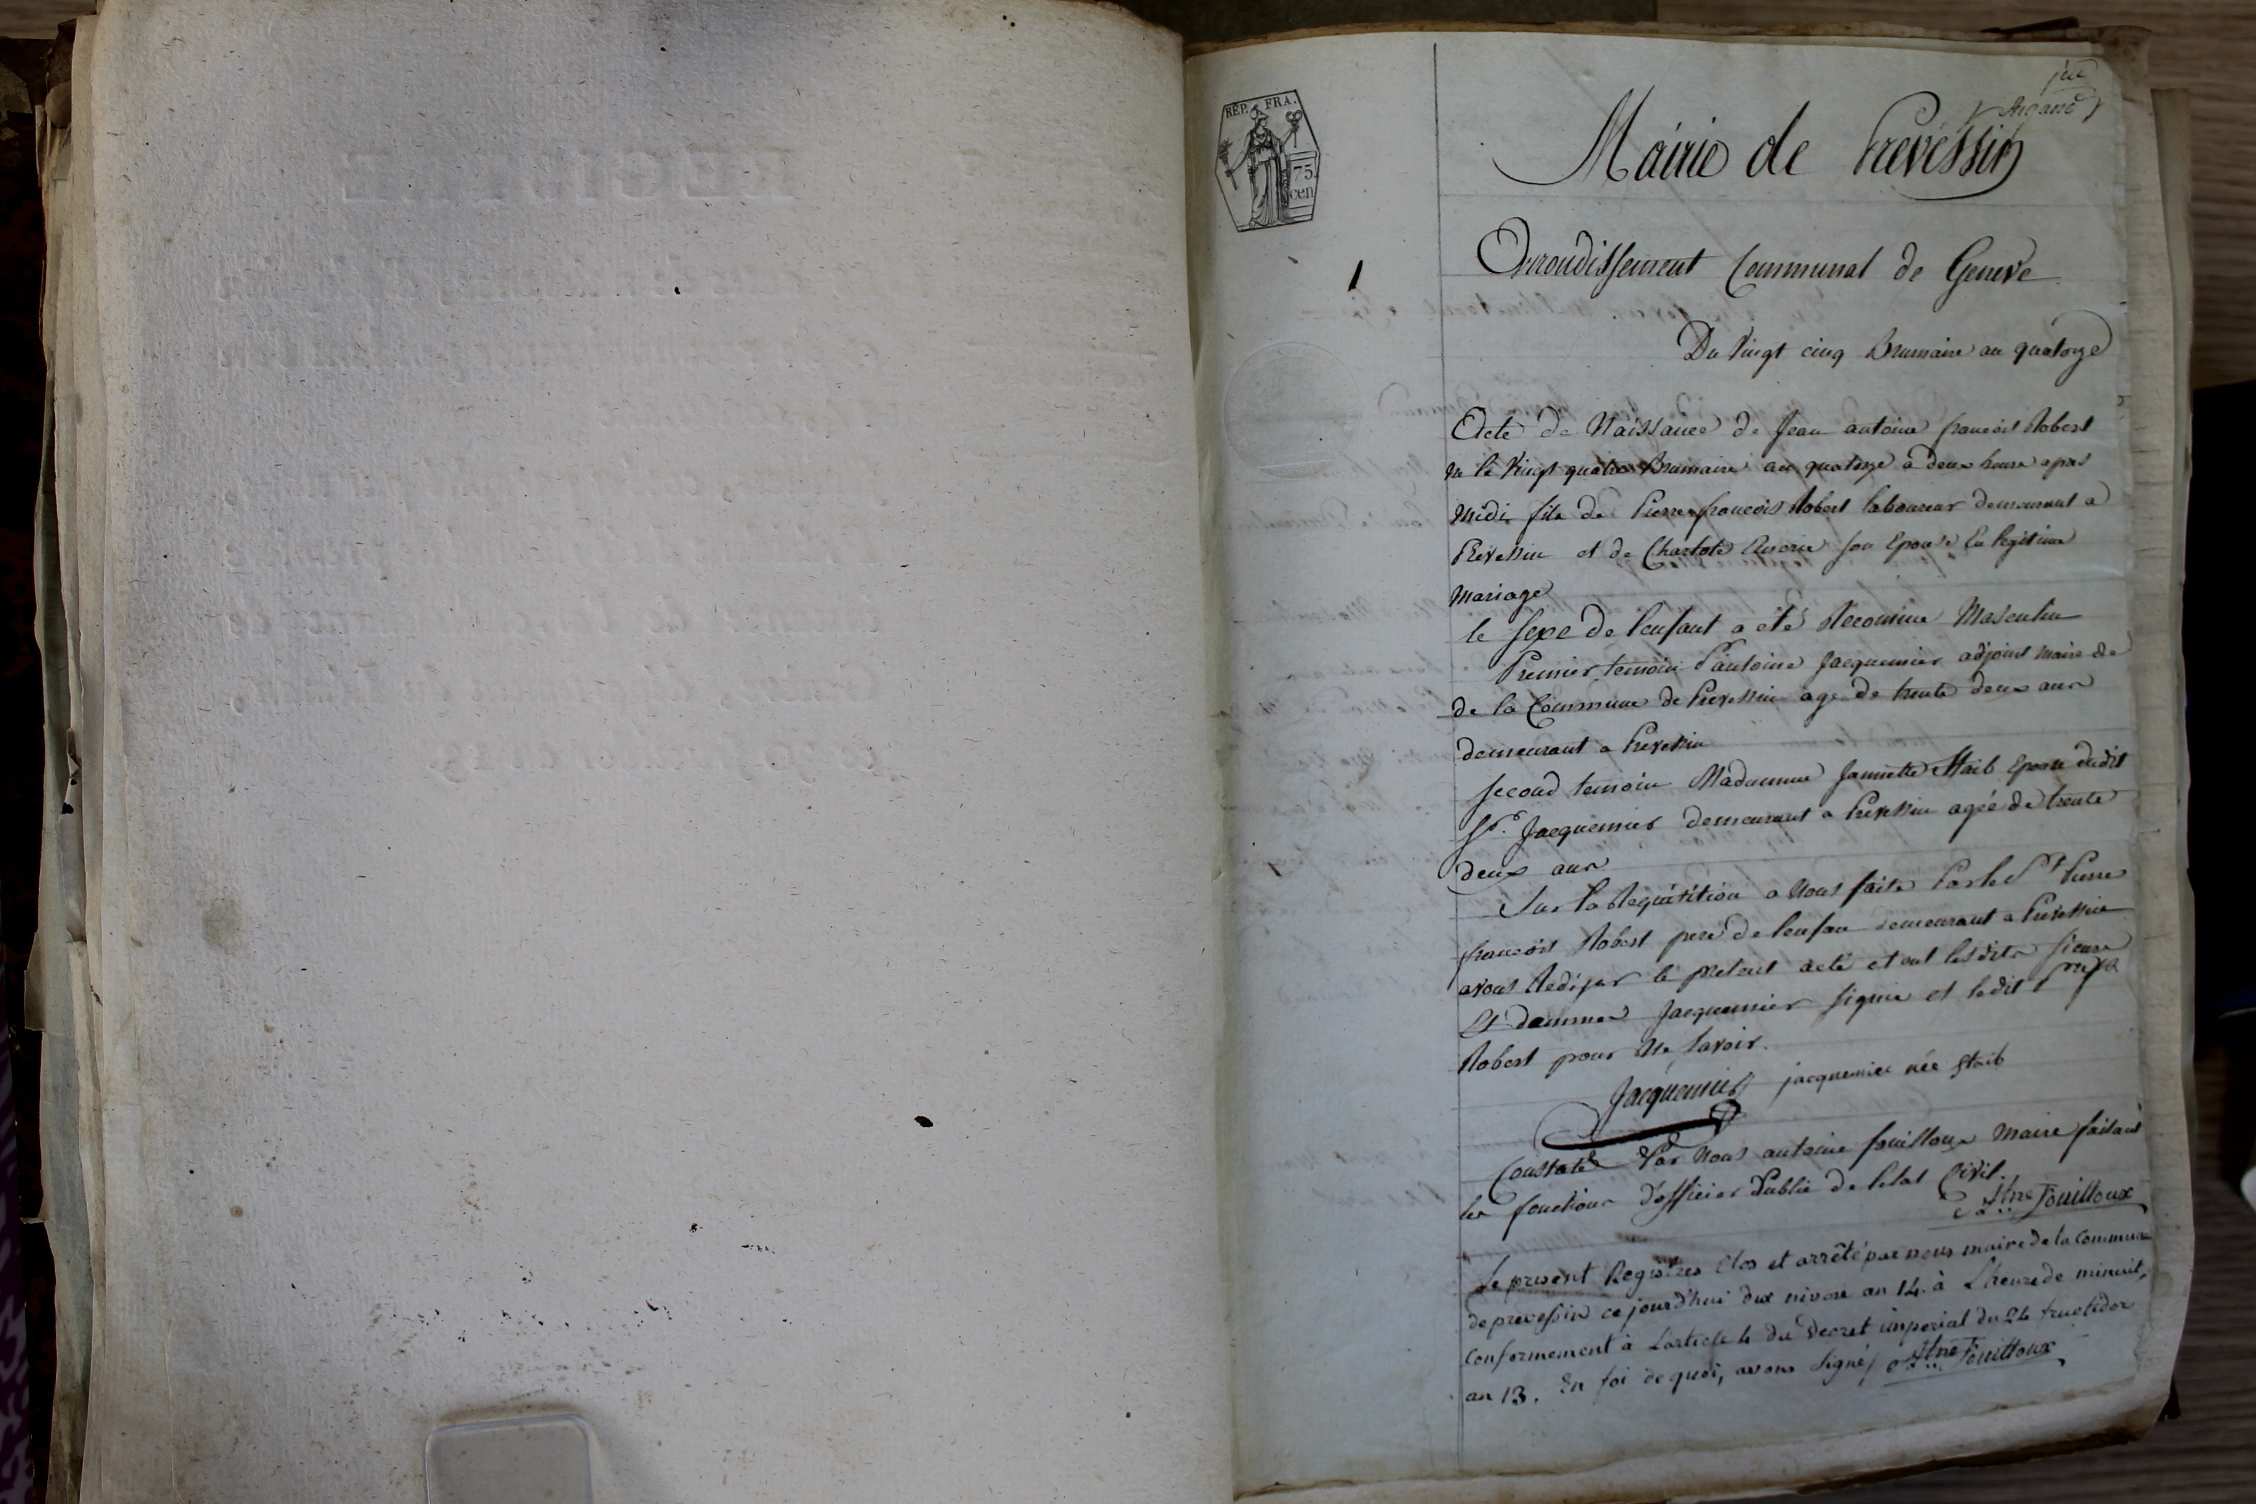 RÉP. FRA.
75
cen
1
Mairie de Prevessin
Arrondissement Communal de Geneve
Du Vingt cinq Brumaire an quatorze
Acte de Naissance de Jean antoine francois Robert
né le Vingt quatre Brumaire an quatorze a deux heure apres
midi fils de Pierre francois Robert laboureur demeurant a
Prevessin et de Charlote son Epouse En legitime
mariage
le sexe de l'enfant a été Reconnue Masculin
Premier temoin antoine Jacquemier adjoint maire de
de la Commune de Prevessin age de trente deux ans
demeurant a Prevessin
second temoin Madamme Jannette Staib Epouse dudit
Sr. Jacquemier demeurant a Prevessin agée de trente
deux ans
Sur la Requisition a Nous faite Par le Sr Pierre
francois Robert pere de lenfan demeurant a Prevessin
avons Rediger le present acte et ont lesdits sieurs
Et damme Jacquemier signié et ledit
Robert pour Ne savoir.
Jacquemier jacquemier née staib
Constaté Par Nous antoine fouilloux Maire faisant
les fonctions d'officier Public de letat Civil.
Atne Fouilloux
Le present Registres Clos et arrêté par nous maire de la commune
de prevessin ce jourd'hui dix nivose an 14. à L'heure de minuit,
conformement à L'article 4 du Decret imperial du 24 fructidor
an 13. En foi de quoi, avons signé / Atne Fouilloux